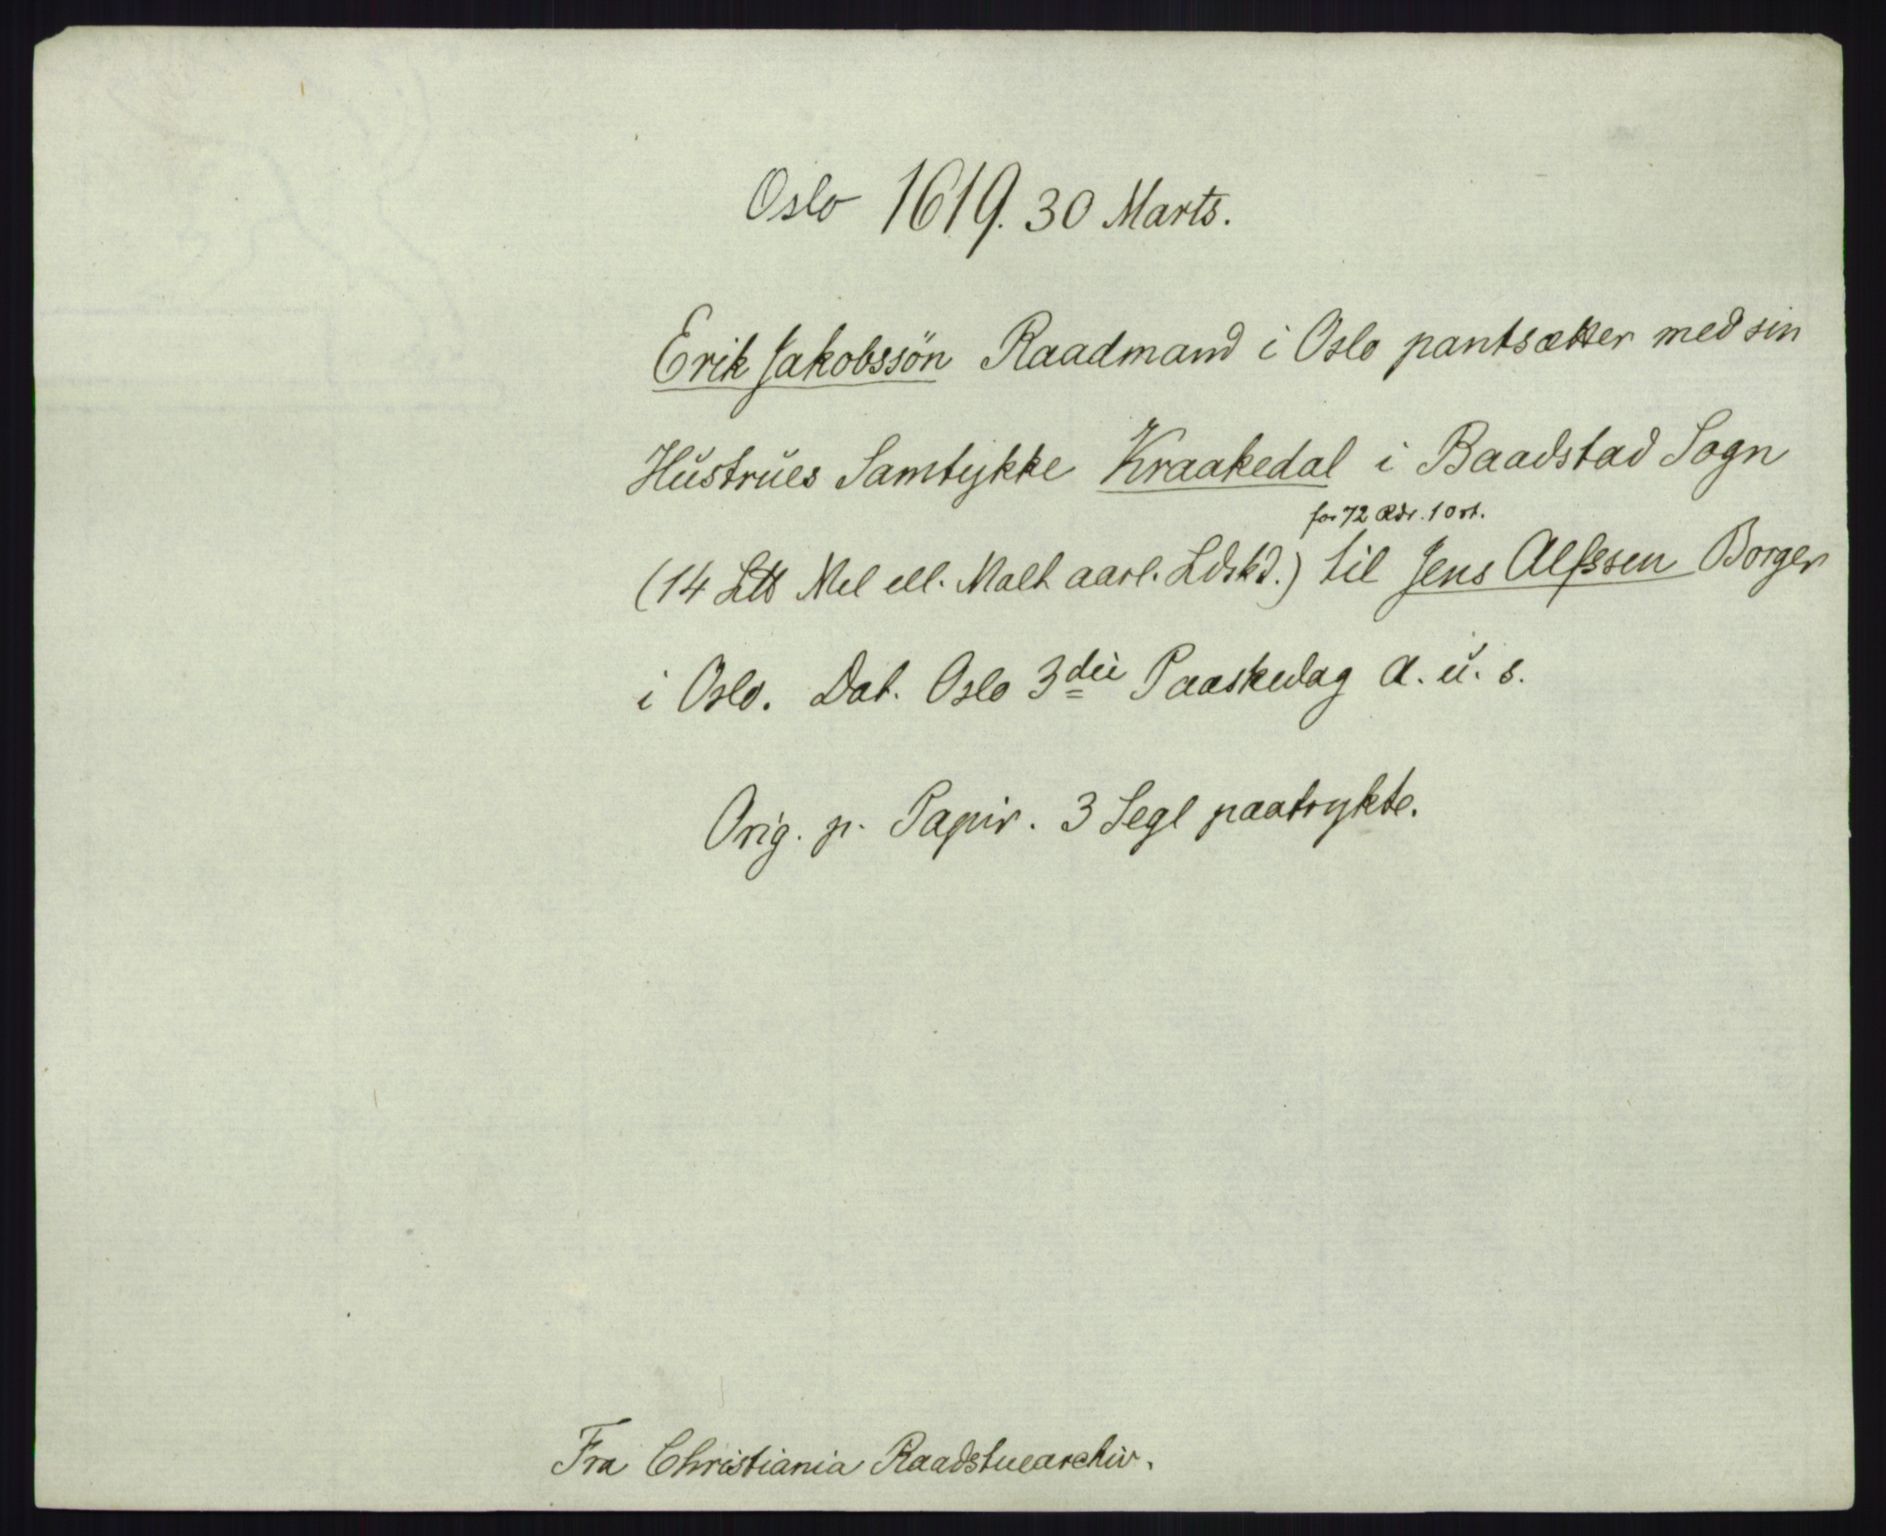 Oslo 1619. 30 Marts.
Erik Jakobssön Raadmand i Oslo pantsætter med sin
Hustrues Samtykke Kraakedal i Baadstad Sogn
for 72 Rdr. 1 ort.
(14 L℔ Mel ell. Malt aarl. Ldskd.) til Jens Alfssen Borger
i Oslo. Dat. Oslo 3die Paaskedag A. u. s.
Orig. p. Papir. 3 Segl paatrykte.
Fra Christiania Raadstuearchiv.